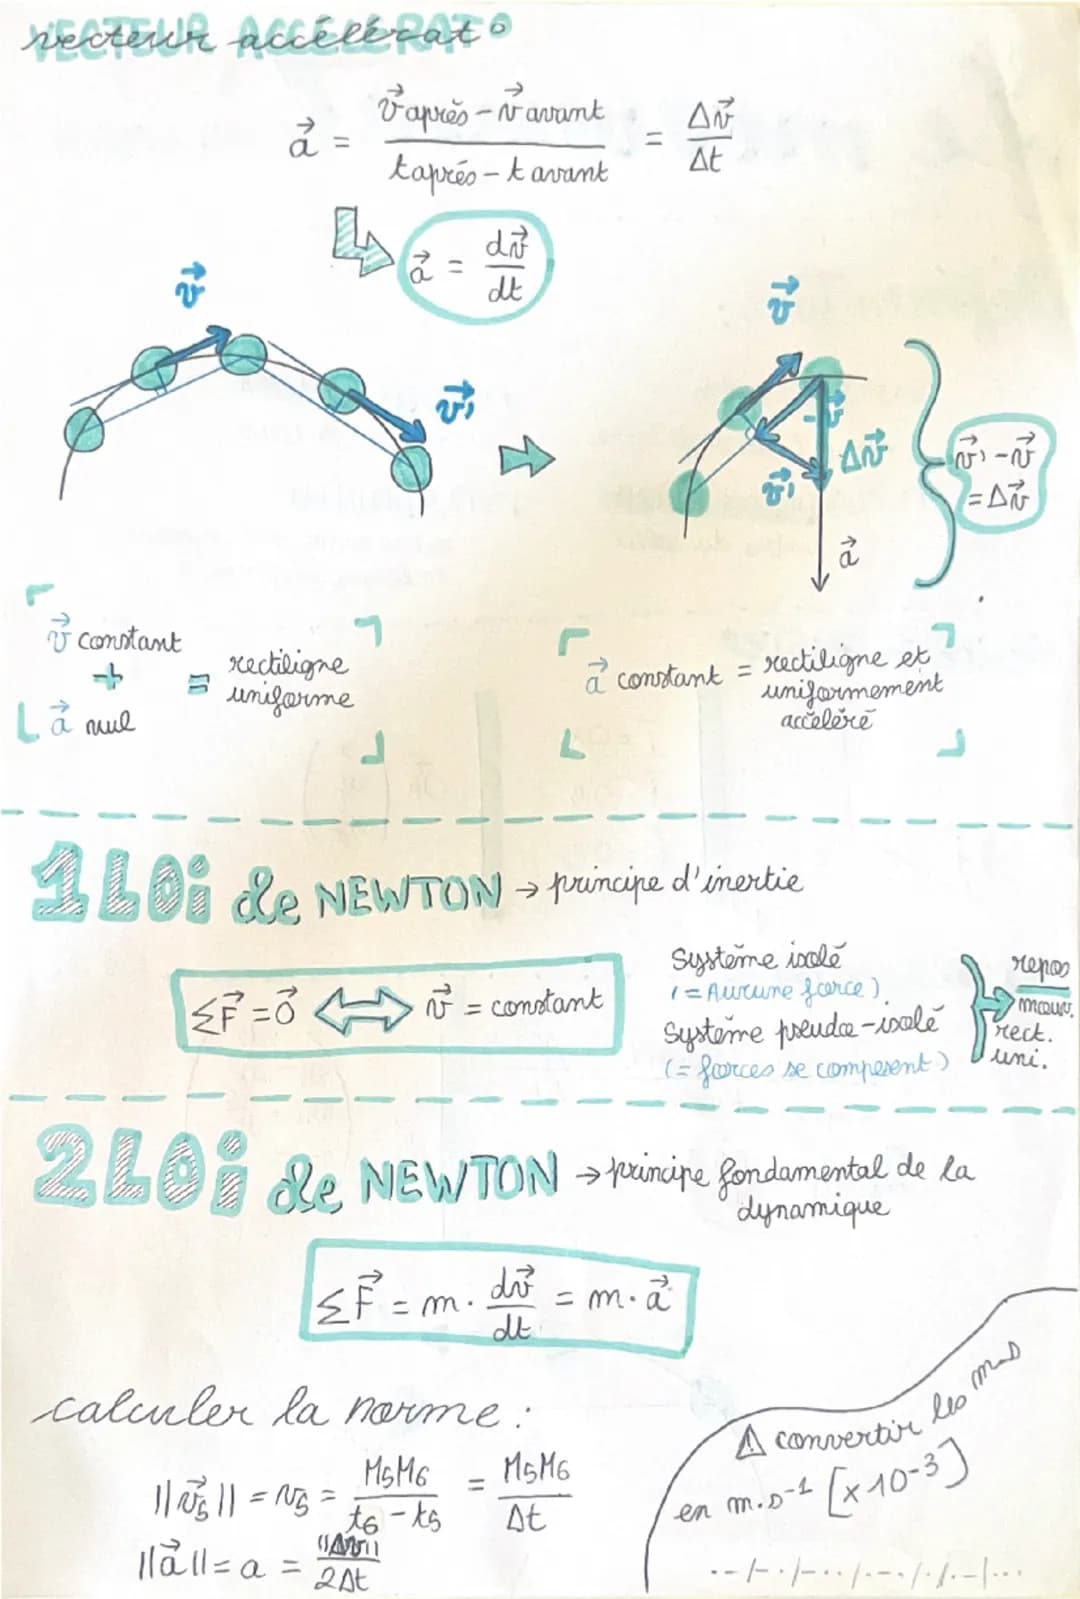 vecteur accélérat°
VECTEUR ACCÉLÉRAT°
a⃗ = (v⃗ après - v⃗ avant) / (t après - t avant) = Δv⃗ / Δt
a⃗ = dv⃗ / dt
v⃗
v⃗'
v⃗
-v⃗
v⃗'
Δv⃗
a⃗
v⃗' - v⃗
= Δv⃗
v⃗ constant
+
a⃗ nul
= rectiligne
uniforme
a⃗ constant = rectiligne et
uniformement
accéléré
1 LOi de NEWTON → principe d'inertie
ΣF⃗ = 0⃗ ⇔ v⃗ = constant
Système isolé
(= Aucune force)
Système pseudo-isolé
(= forces se compesent)
repos
mouv.
rect.
uni.
2 LOi de NEWTON → principe fondamental de la
dynamique
ΣF⃗ = m · dv⃗ / dt = m · a⃗
calculer la norme :
||v⃗5|| = v5 = M5M6 / (t6 - t5) = M5M6 / Δt
||a⃗|| = a = ||Δv|| / 2Δt
⚠ convertir les ms
en m.s⁻¹ [x 10⁻³]